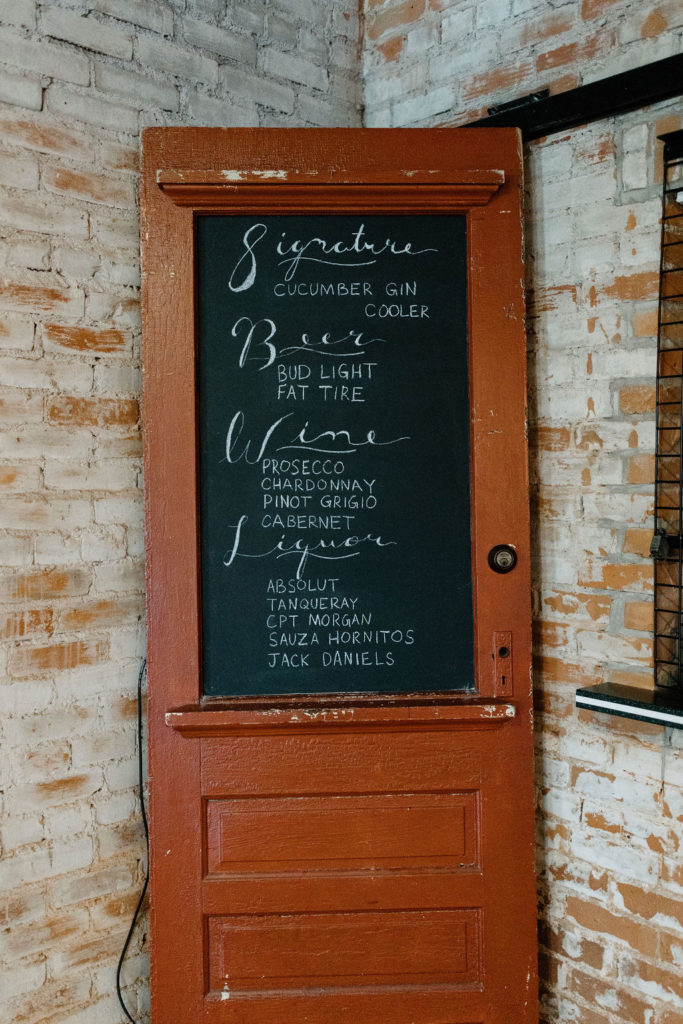 Signature
CUCUMBER GIN
COOLER
Beer
BUD LIGHT
FAT TIRE
Wine
PROSECCO
CHARDONNAY
PINOT GRIGIO
CABERNET
Liquor
ABSOLUT
TANQUERAY
CPT MORGAN
SAUZA HORNITOS
JACK DANIELS